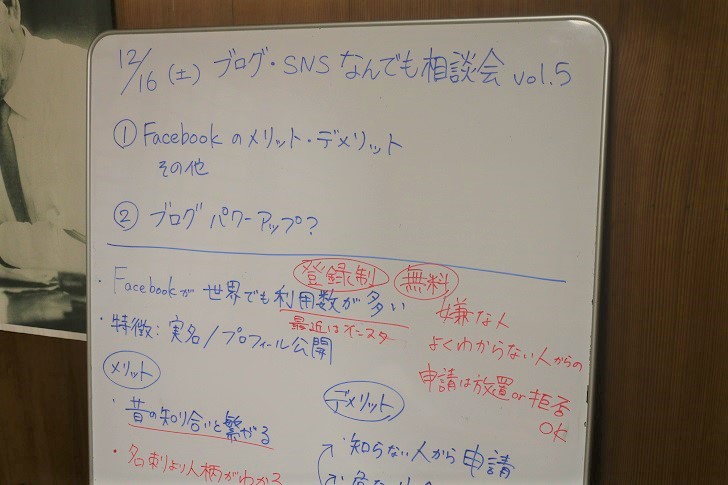 12/16(土) ブログ・SNSなんでも相談会 vol.5
① Facebookのメリット・デメリット
その他
② ブログパワーアップ?
登録制 無料
・Facebookが世界でも利用数が多い
最近はインスタ
・特徴:実名/プロフィール公開
嫌な人
よくわからない人からの
申請は放置or拒否
OK
メリット
・昔の知り合いと繋がる
・名刺より人柄がわかる
デメリット
・知らない人から申請